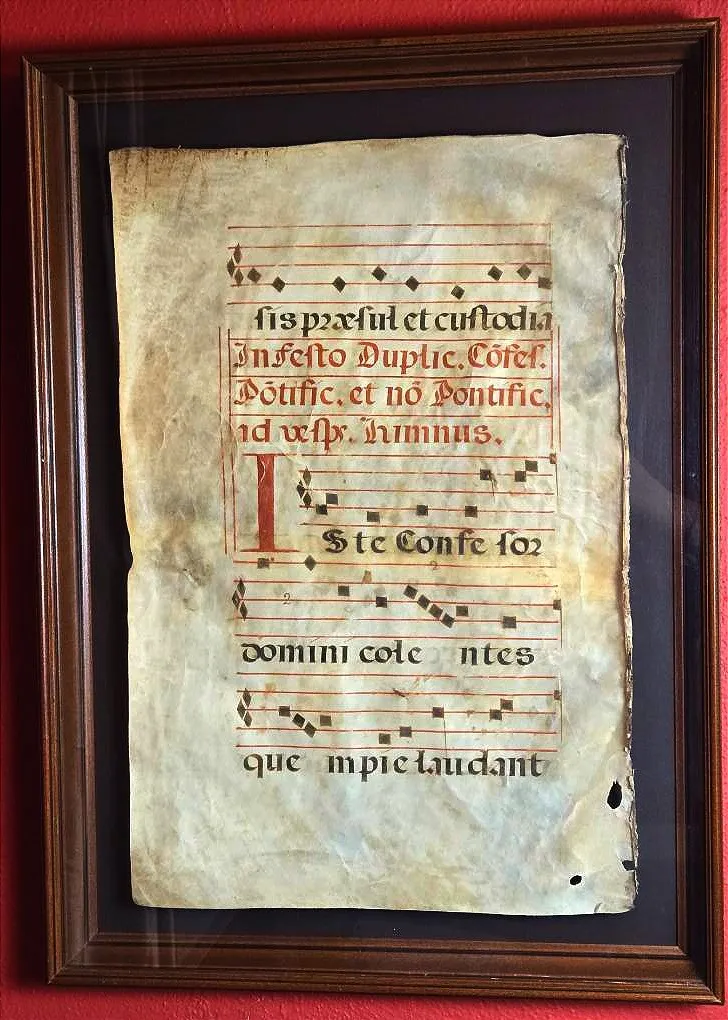 sis præsul et custodia
In Festo Duplic. Cõfes.
Põtific. et nõ Pontific.
ad vespr. himnus.
I Ste Confe sor
2
2
domini cole ntes
que m pie laudant